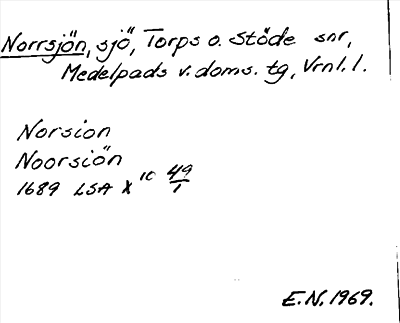 Norrsjön, sjö, Torps o. Stöde snr,
Medelpads v. doms. tg, Vrnl. l.
Norsion
Noorsiön
1689 LSA X 10 49/1
E.N. 1969.